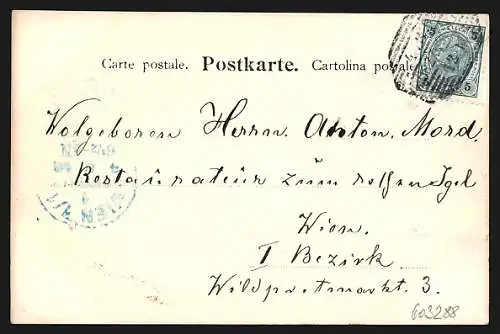 Carte postale. Postkarte. Cartolina postale.
5
Wolgeboren Herrn. Anton. Mord.
Restaurateur zum rothen Igel
Wien.
I Bezirk
Wildpretmarkt. 3.
WIEN 1/1
603288